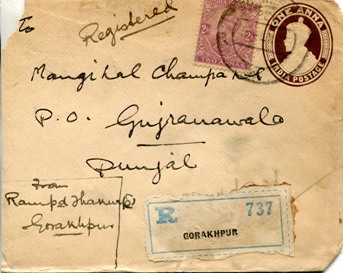 To
Registered
ONE ANNA
INDIA POSTAGE
Mangilal Champalal
P.O. Gujranawala
Punjab
From
Gorakhpur
R 737
GORAKHPUR